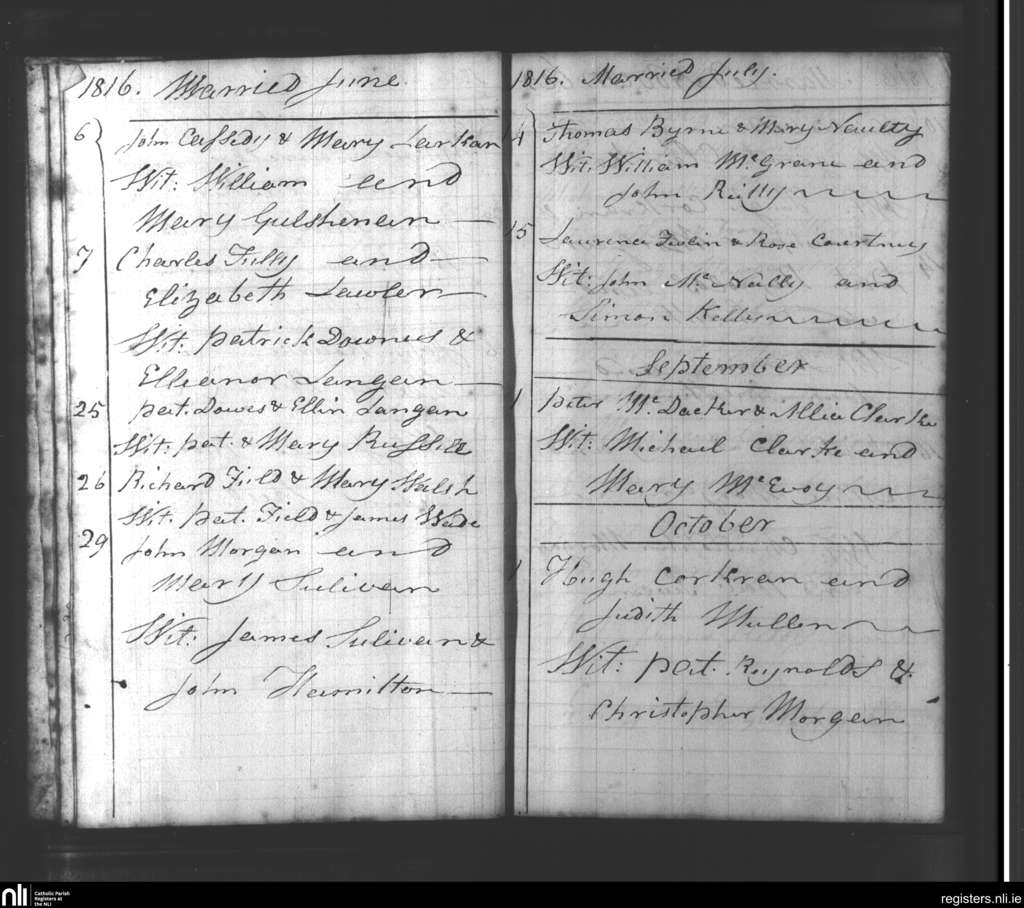 1816. Married June
6 John Cassedy & Mary Larkan
Wit: William and
Mary Gulshenan
7 Charles Tully and
Elizabeth Lawler
Wit: Patrick Downes &
Elleanor Langan
25 Pat. Dowes & Ellin Langan
Wit: Pat. & Mary Russill
26 Richard Field & Mary Walsh
Wit. Pat. Field & James Wade
29 John Morgan and
Mary Sulivan
Wit: James Sulivan &
John Hamilton
1816. Married July.
14 Thomas Byrne & Mary Naulty
Wit. William McGrane and
John Reilly
15 Laurence & Rose Courtney
Wit: John McNally and
Simon Kelly
September
1 Peter & Allice Clarke
Wit: Michael Clarke and
Mary McEvoy
October
1 Hugh Corkran and
Judith Mullen
Wit: Pat. Reynolds &
Christopher Morgan
nli
Catholic Parish
Registers at
the NLI
registers.nli.ie